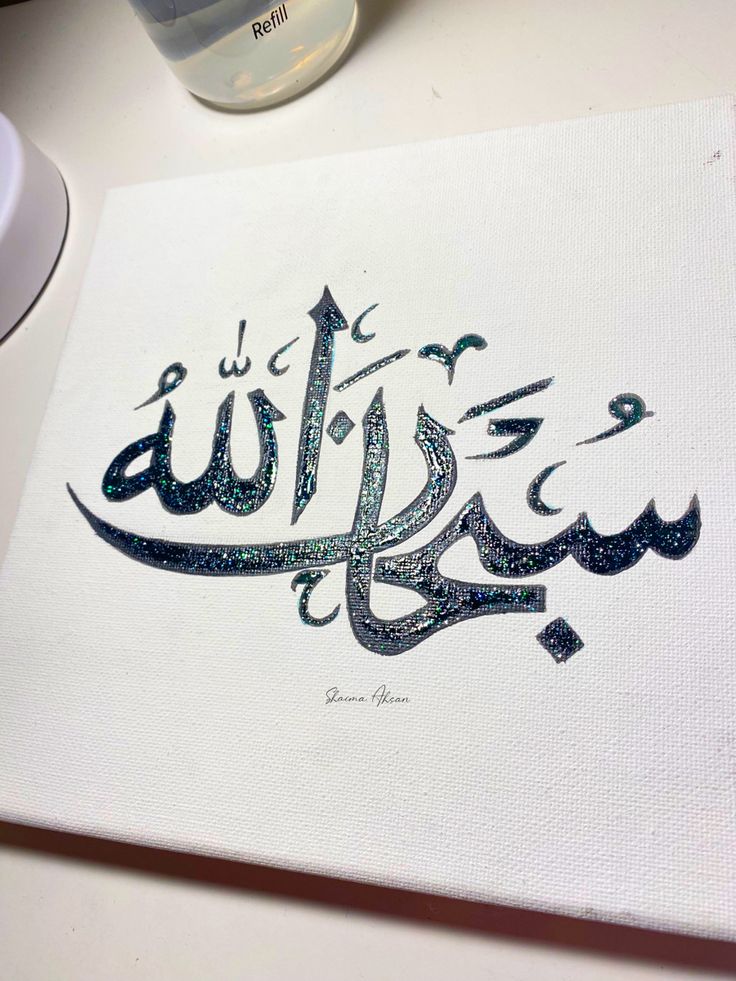 Refill
سُبْحَانَ اللّٰه
Shaima Ahsan